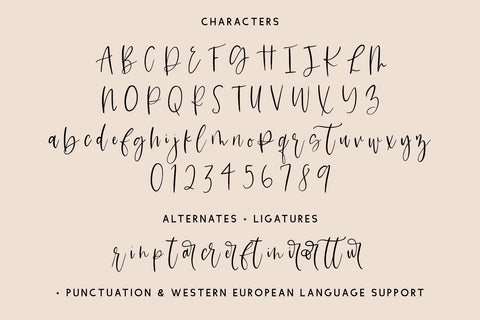 CHARACTERS
A B C D E F G H I J K L M
N O P Q R S T U V W X Y Z
a b c d e f g h i j k l m n o p q r s t u v w x y z
0 1 2 3 4 5 6 7 8 9
ALTERNATES + LIGATURES
+ PUNCTUATION & WESTERN EUROPEAN LANGUAGE SUPPORT